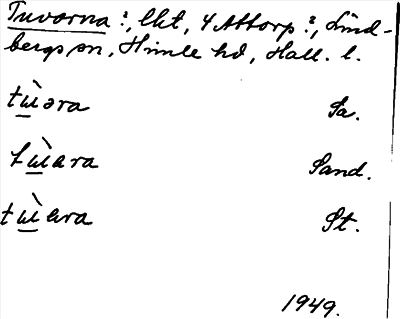 Tuvorna?, lkt, 4 Attorp?, Lind-
bergs sn, Himle hd, Hall. l.
tɯ̀əra Sa.
tɯ̀ara Sand.
tɯ̀ɐra St.
1949.